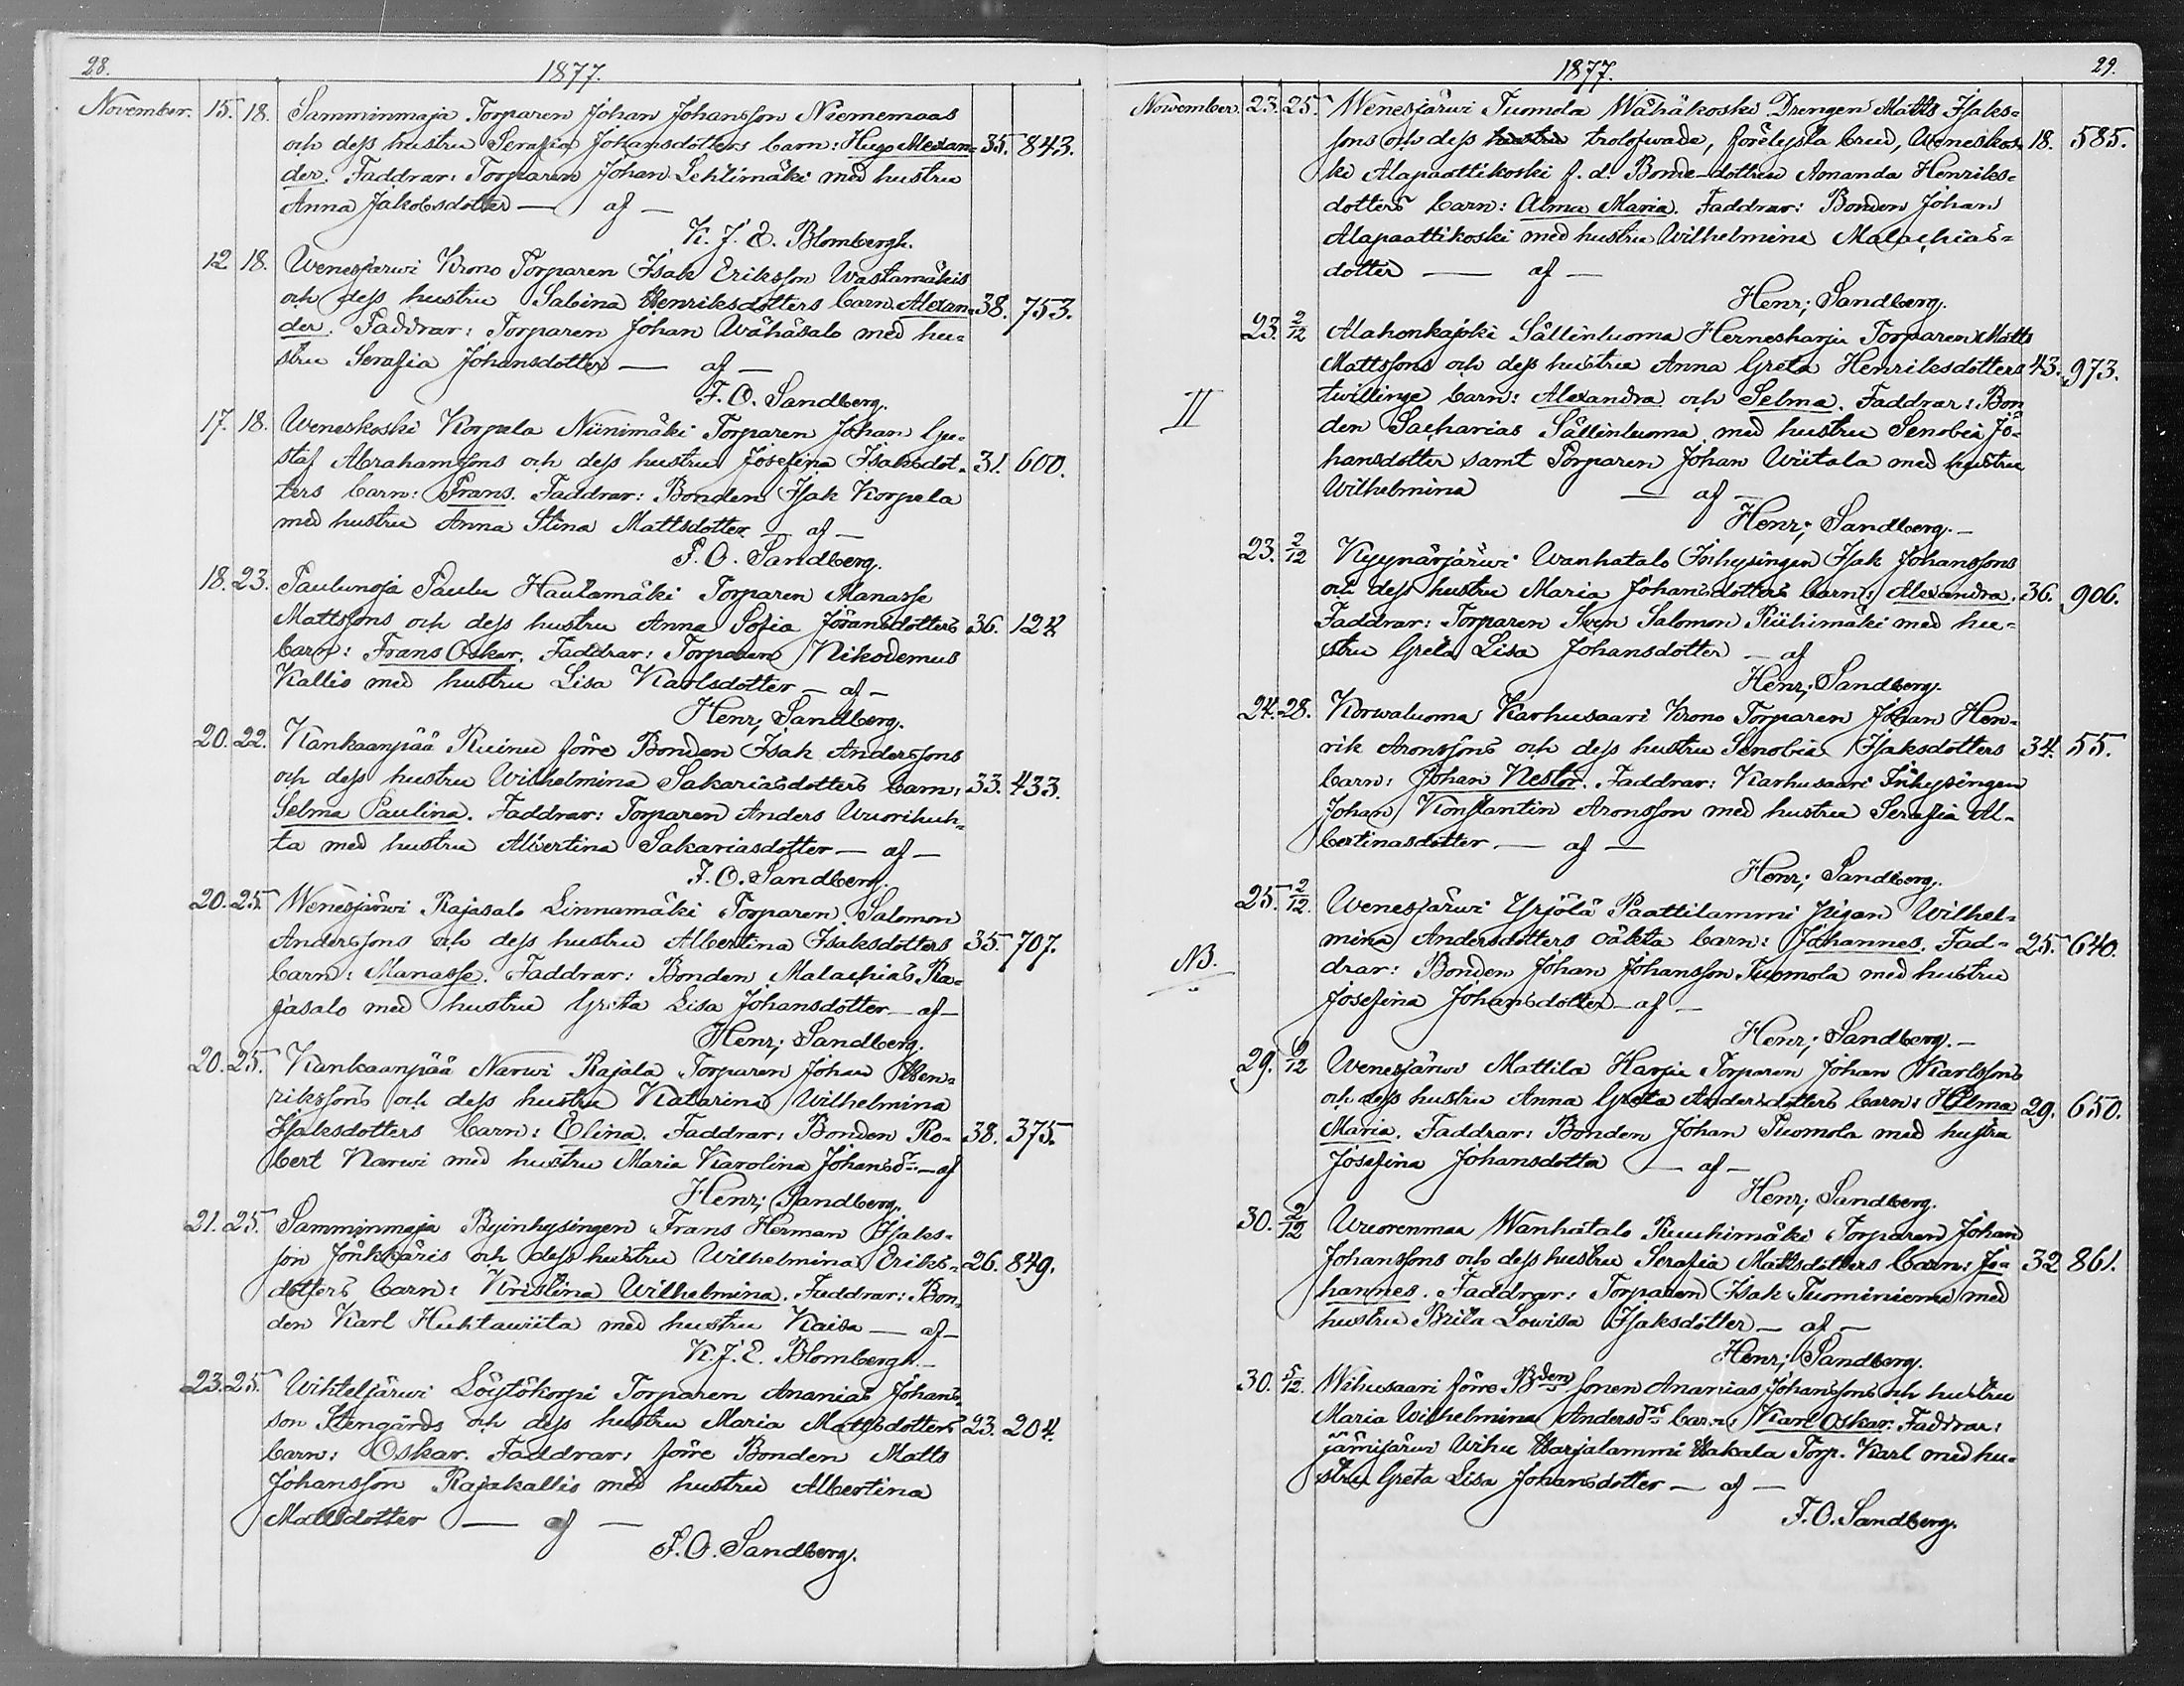 28.
1877.
November. 15. 18. Samminmaja Torparen Johan Johansson Niememaas
och dess hustru Serafia Johansdotters barn: Hugo Alexan- 35. 843.
der. Faddrar: Torparen Johan Lehtimäki med hustru
Anna Jakobsdotter — af —
K. J. E. Blombergh.
12 18. Wenesjärwi Krono Torparen Isak Eriksson Wastamäkis
och dess hustru Sabina Henriksdotters barn Alexan- 38. 753.
der. Faddrar: Torparen Johan Wähäsalo med hu-
stru Serafia Johansdotter — af —
F. O. Sandberg.
17. 18. Weneskoski Korpela Niinimäki Torparen Johan Gu-
staf Abrahamssons och dess hustru Josefina Isaksdot- 31. 600.
ters barn: Frans. Faddrar: Bonden Isak Korpela
med hustru Anna Stina Mattsdotter — af —
F. O. Sandberg.
18. 23. Paulunoja Paulu Hautamäki Torparen Manasse
Mattssons och dess hustru Anna Sofia Jöransdotters 36. 124
barn: Frans Oskar. Faddrar: Torparen Nikodemus
Kallio med hustru Lisa Karlsdotter — af —
Henr; Sandberg.
20. 22. Kankaanpää Ruinu förre Bonden Isak Anderssons
och dess hustru Wilhelmina Sakariasdotters barn: 33. 433.
Selma Paulina. Faddrar: Torparen Anders Wuorihuh-
ta med hustru Albertina Sakariasdotter — af —
F. O. Sandberg.
20. 25. Wenesjärwi Rajasalo Linnamäki Torparen Salomon
Anderssons och dess hustru Albertina Isaksdotters 35. 707.
barn: Manasse. Faddrar: Bonden Malachias Ra-
jasalo med hustru Greta Lisa Johansdotter — af —
Henr; Sandberg.
20. 25. Kankaanpää Narwi Rajala Torparen Johan Hen-
rikssons och dess hustru Katarina Wilhelmina
Isaksdotters barn: Elina. Faddrar: Bonden Ro- 38. 375.
bert Narwi med hustru Maria Karolina Johansdr — af
Henr; Sandberg.
21. 25. Samminmaja Byinhysingen Frans Herman Isaks-
son Jönkkäris och dess hustru Wilhelmina Eriks- 26. 849.
dotters barn: Kristina Wilhelmina. Faddrar: Bon-
den Karl Huhtawiita med hustru Kaisa — af —
K. J. E. Blombergh. —
23. 25. Wihteljärwi Löytökorpi Torparen Ananias Johans-
son Stengårds och dess hustru Maria Mattsdotters 23. 204.
barn: Oskar. Faddrar: förre Bonden Matts
Johansson Rajakallio med hustru Albertina
Mattsdotter — af —
F. O. Sandberg.
1877.
29.
November. 23. 25. Wenesjärwi Tuomola Wähäkoski Drengen Matts Isaks-
sons och dess hustru trolofwade, förelysta brud, Weneskos- 18. 585.
ki Alapaattikoski f. d. Bonde-dottren Amanda Henriks-
dotters barn: Alma Maria. Faddrar: Bonden Johan
Alapaattikoski med hustru Wilhelmina Malachias-
dotter — af —
Henr; Sandberg.
23. 2/12 Alahonkajoki Sällinluoma Hernesharju Torparen Matts
Mattssons och dess hustru Anna Greta Henriksdotters 43. 973.
II twillinge barn: Alexandra och Selma. Faddrar: Bon
den Sacharias Sällinluoma med hustru Senobia Jo-
hansdotter samt Torparen Johan Wiitala med hustru
Wilhelmina — af —
Henr; Sandberg. —
23. 2/12 Kyynärjärwi Wanhatalo Inhysingen Isak Johanssons
och dess hustru Maria Johansdotters barn: Alexandra. 36. 906.
Faddrar: Torparen Sven Salomon Riihimäki med hu-
stru Greta Lisa Johansdotter — af
Henr; Sandberg.
24. 28. Korwaluoma Karhusaari Krono Torparen Johan Hen-
rik Aronssons och dess hustru Senobia Isaksdotters 34. 55.
barn: Johan Nestor. Faddrar: Karhusaari Inhysingen
Johan Konstantin Aronsson med hustru Serafia Al-
bertinasdotter — af —
Henr; Sandberg.
25. 2/12. Wenesjärwi Yrjölä Paattilammi Pigan Wilhel-
mina Andersdotters oäkta barn: Johannes. Fad- 25. 640.
NB. drar: Bonden Johan Johansson Tuomola med hustru
Josefina Johansdotter — af —
Henr; Sandberg. —
29. 9/12 Wenesjärwi Mattila Harju Torparen Johan Karlssons
och dess hustru Anna Greta Andersdotters barn: Hilma 29. 650.
Maria. Faddrar: Bonden Johan Tuomola med hustru
Josefina Johansdotter — af —
Henr; Sandberg.
30. 2/12 Wuorenmaa Wanhatalo Ruuhimäki Torparen Johan
Johanssons och dess hustru Serafia Mattsdotters barn: Jo- 32 861.
hannes. Faddrar: Torparen Isak Tuominiemi med
hustru Brita Lowisa Isaksdotter — af —
Henr; Sandberg.
30. 5/12. Wihusaari förre Bden sonen Ananias Johanssons och hustru
Maria Wilhelmina Andersdrs barn: Karl Oskar. Faddrar:
Jämijärwi Wihu Harjalammi Hakala Torp. Karl med hu-
stru Greta Lisa Johansdotter — af —
F. O. Sandberg.